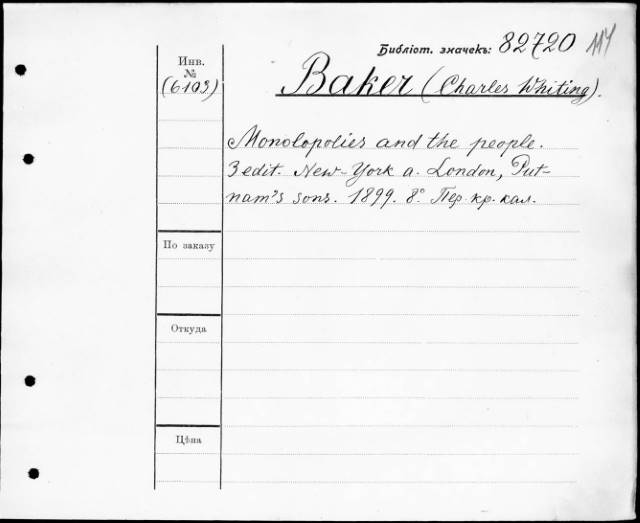 Библіот. значекъ: 82720 114
Инв.
№
(6103)
Baker (Charles Whiting).
Monolopolies and the people.
3 edit. New-York a. London, Put-
nam's sons. 1899. 8° Пер. кр. кал.
По заказу
Откуда
Цѣна